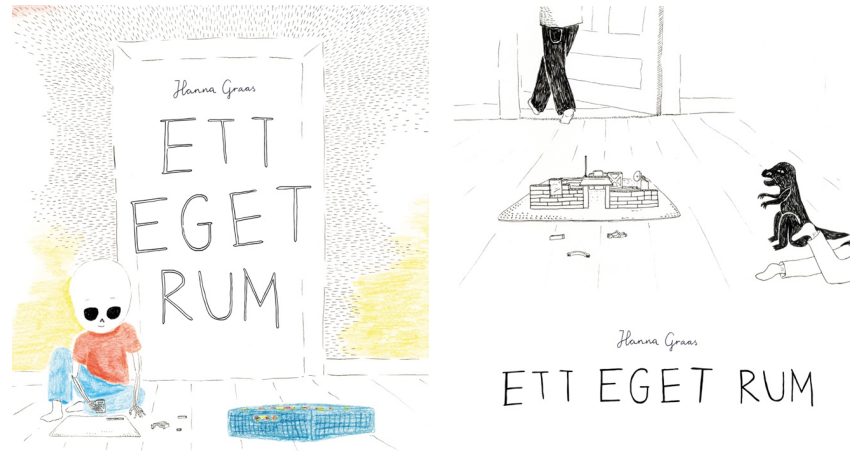 Hanna Graas
ETT
EGET
RUM
Hanna Graas
ETT EGET RUM